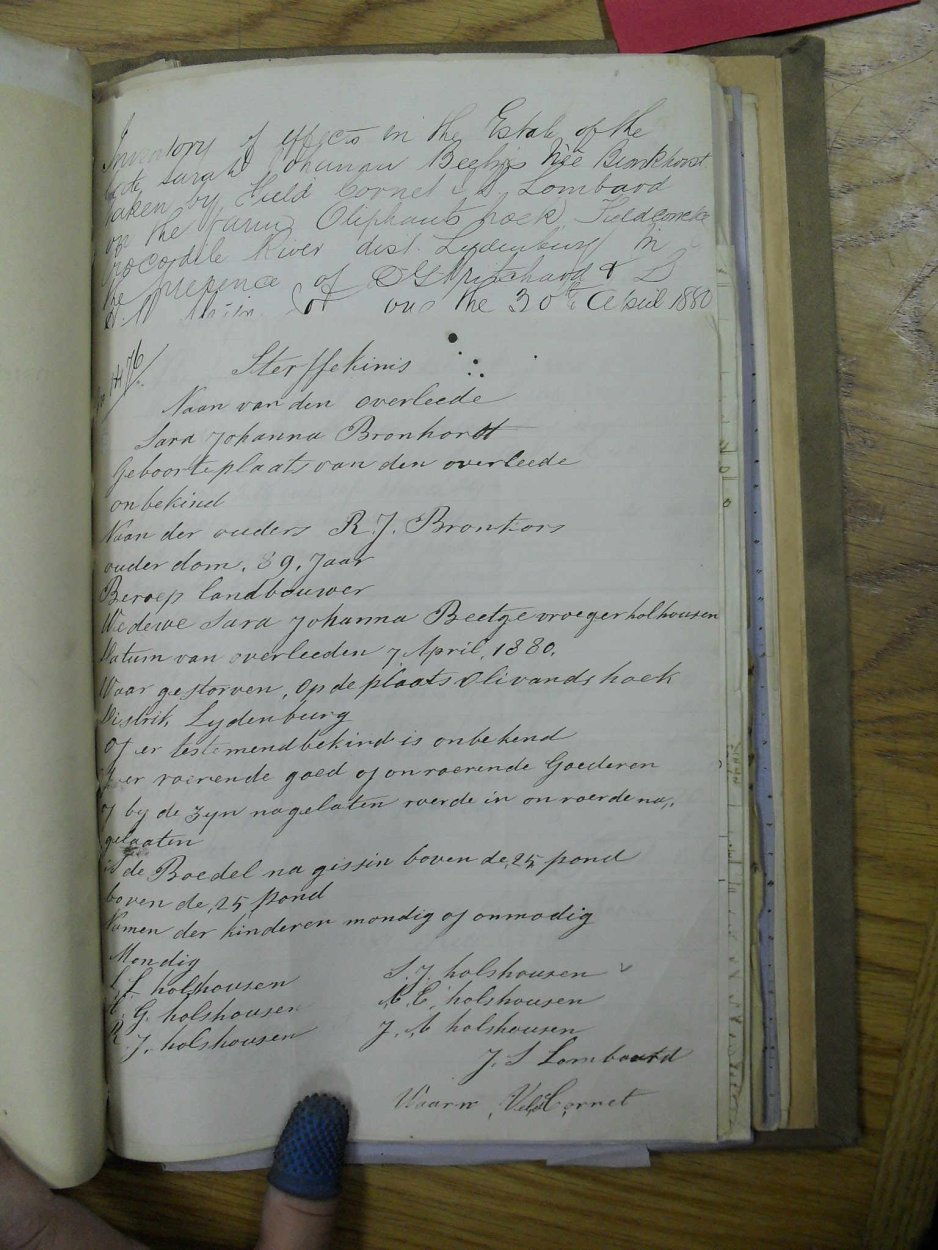 Inventory of effects in the Estate of the
late Sarah Johanna Beetjis Née Bronkhorst
taken by Field Cornet J S Lombard
on the farm Oliphants hoek Fieldcornetcy
Crocodile River dist. Lydenburg in
the presence of Pritchard &
on the 30th April 1880
Sterffekinis
Naan van den overleede
Sara Johanna Bronhordt
Geboorteplaats van den overleede
onbekind
Naan der ouders R. J. Bronkors
ouderdom, 89, Jaar
Beroep landbouwer
Wedewe Sara Johanna Beetge vroeger holhousen
Datum van overleeden 7 April, 1880,
Waar gestorven, Op de plaats Olivandshoek
Distrik Lydenburg
Of er testemend bekind is onbekend
Of er roerende goed of onroerende Goederen
of by de zyn nagelaten roerde in onroerde na,
gelaaten
is de Boedel na gissin boven de 25 pond
boven de 25 pond
Namen der kinderen mondig of onmodig
Mondig
holshousen S. J. holshousen
G. holshousen C. holshousen
R. J. holshousen J. holshousen
J. S Lombaard
Waarn Veld Cornet